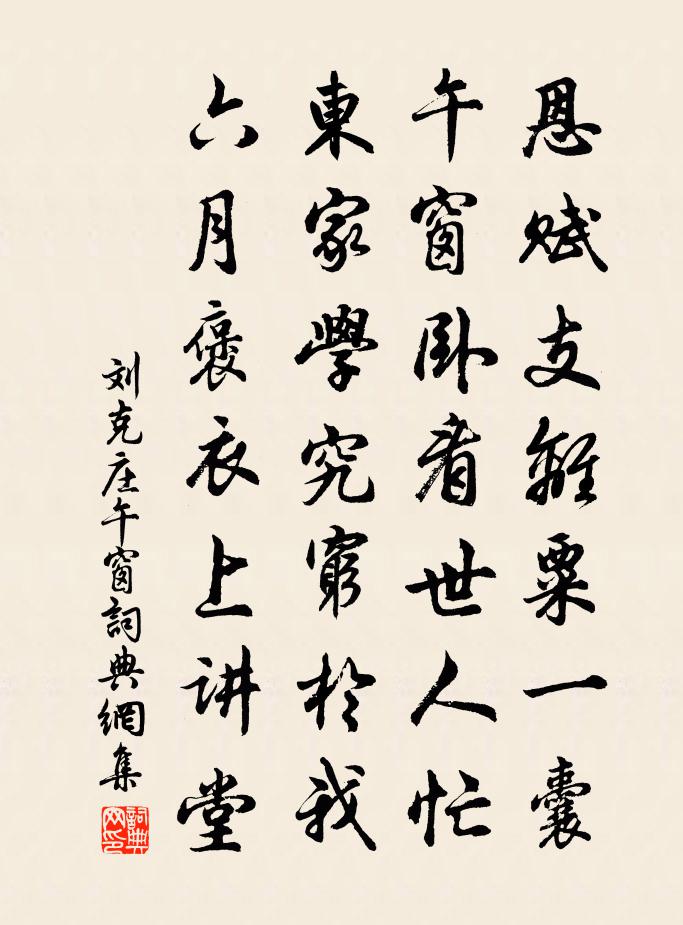 恩赋支離粟一囊
午窗卧看世人忙
東家學究窮於我
六月褒衣上讲堂
刘克庄午窗詞典網集
詞典
网印